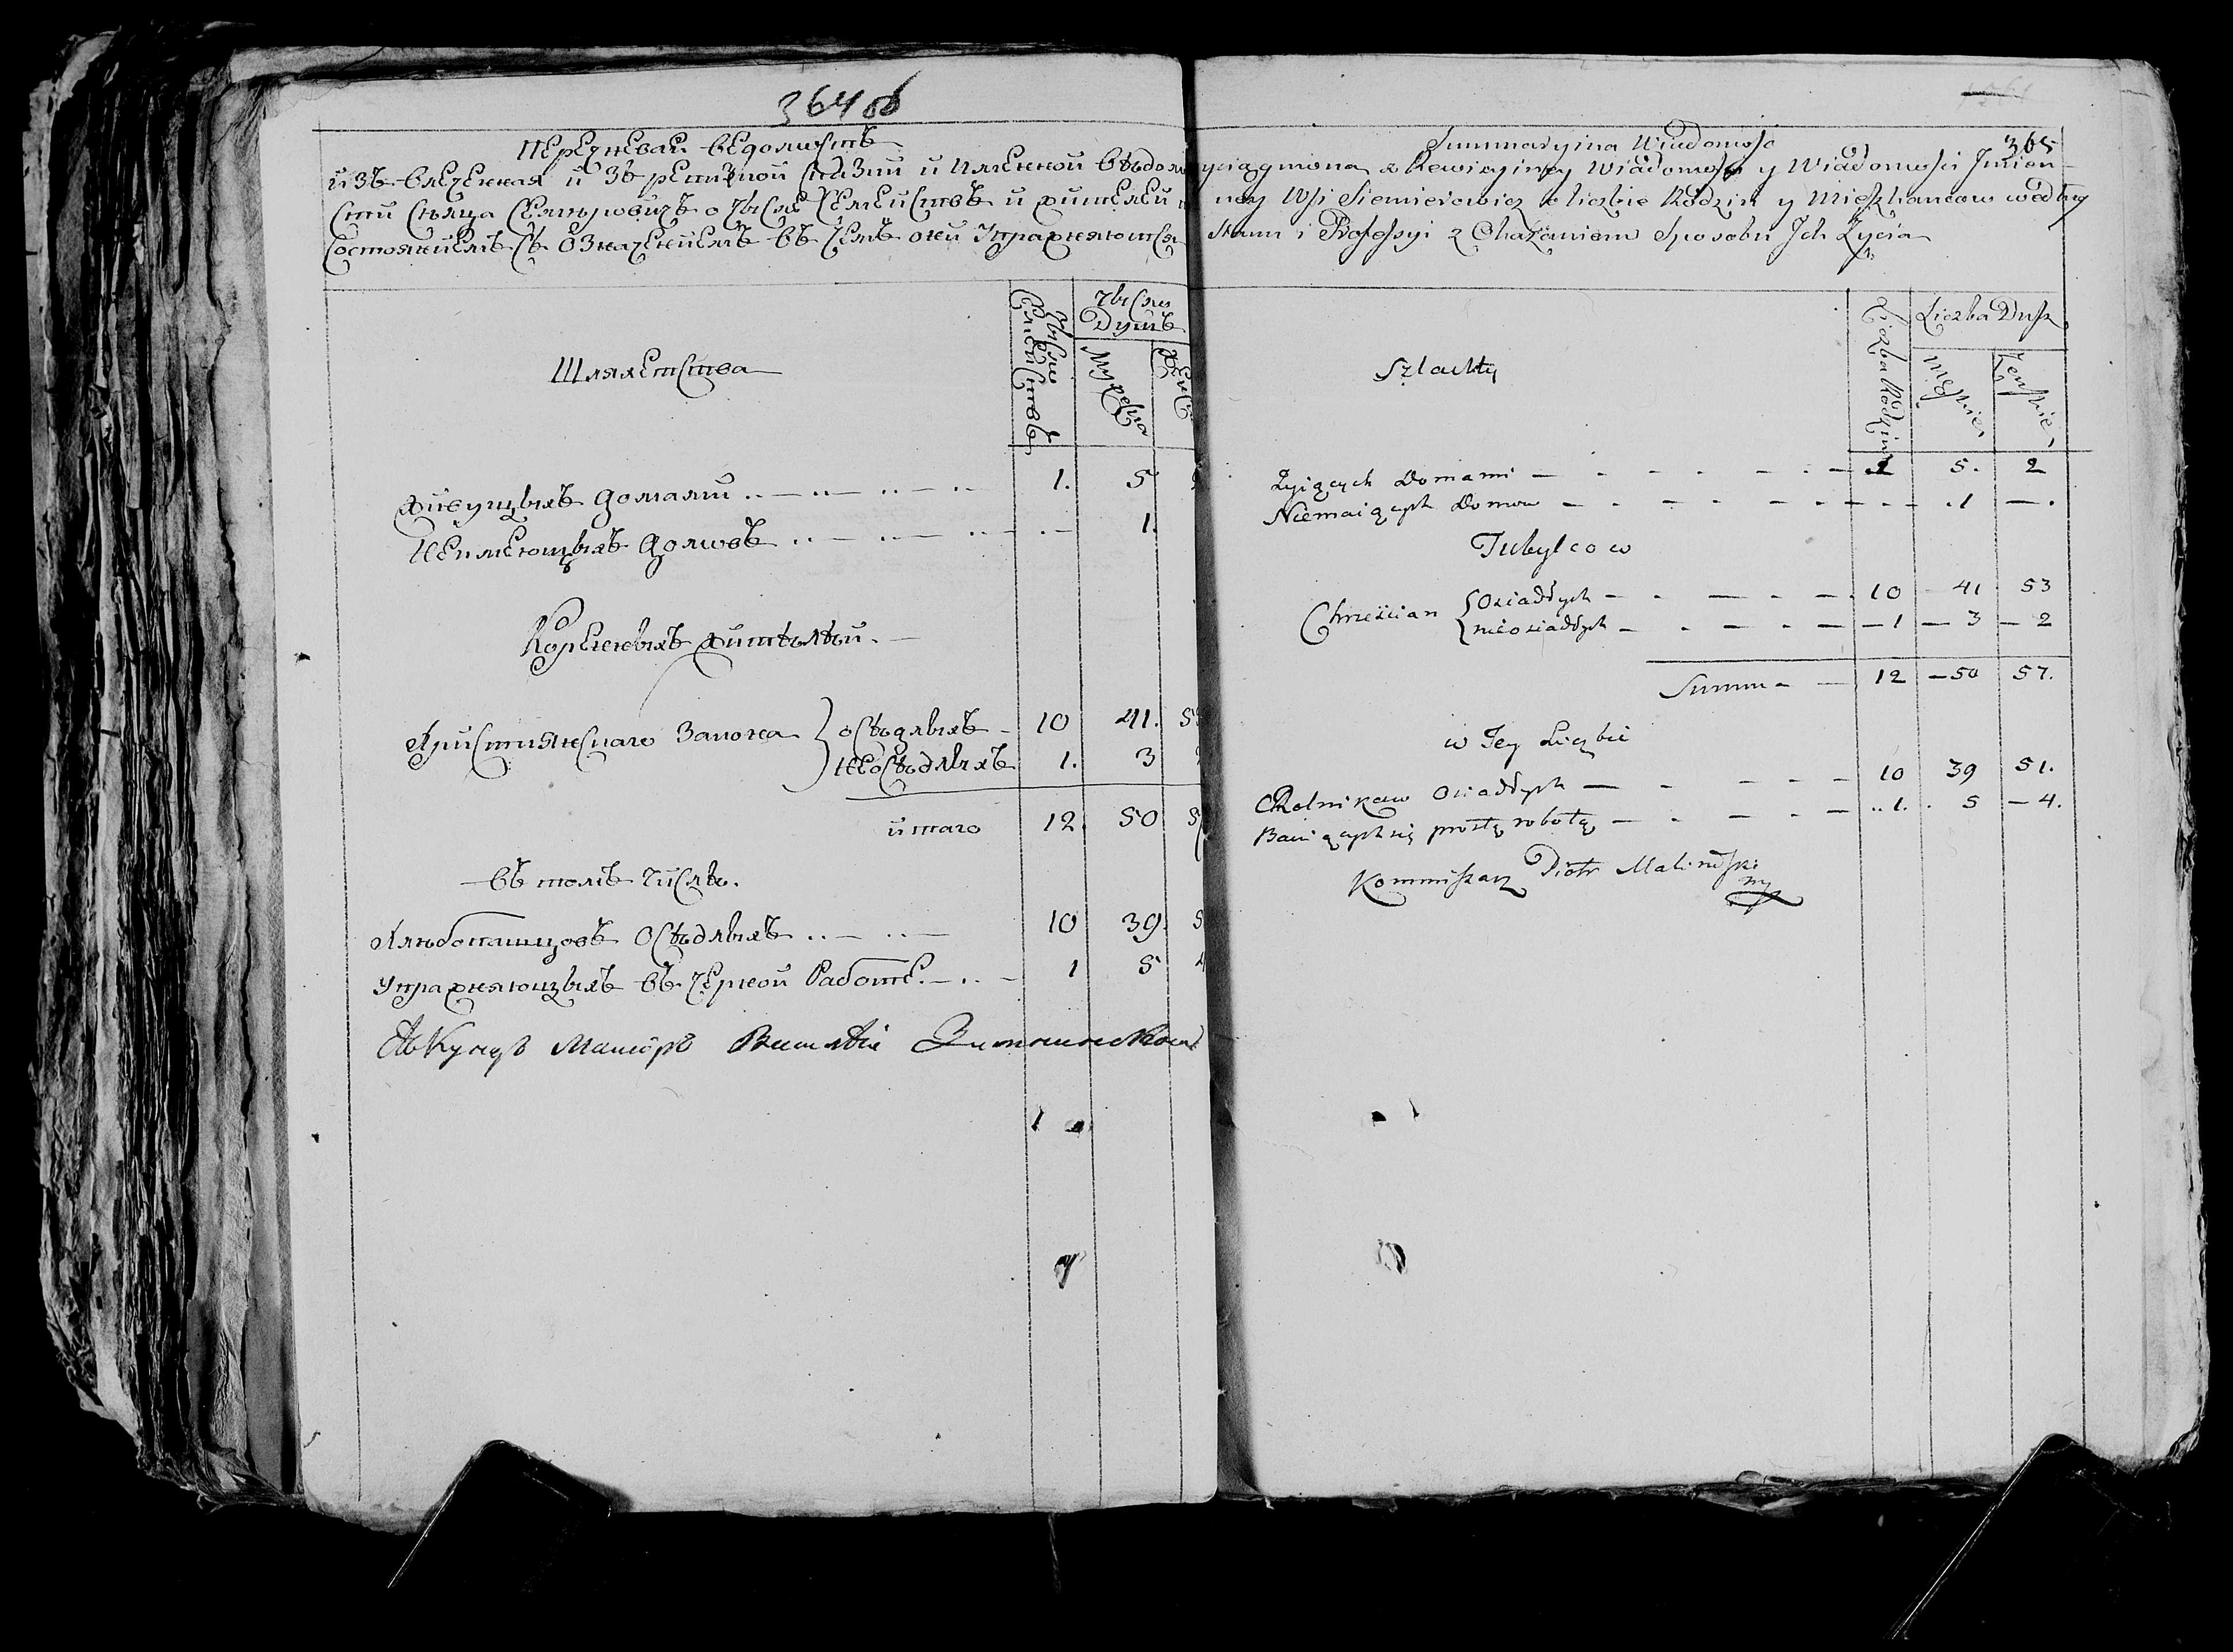 364 об
Перечневая ведомость
изъ влеченная изъ ревизкой сказки и имянной ведомо
сти сельца Семѣровичъ о числе семействъ и жителей
состояниемъ съ означениемъ въ чемъ они упражняются
Шляхетства
число семействъ
число душъ
мужеска
женс
живущихъ домами 1. 5
неимеющихъ домовъ 1.
Коренныхъ жителей
Християнскаго закона } оседлыхъ 10 41. 5
неоседлыхъ 1. 3
итаго 12. 50 5
въ томъ числе.
Хлебопашцовъ оседлыхъ 10 39. 5
упражняющихъ въ черной работе. 1 5 4
Секундъ Маиоръ
365
Summaryina Wiadomość
yciągniona z Rewizyiney Wiadomości y Wiadomości Imien-
ney Wsi Siemierowicz o liczbie Rodzin y Mieszkancow według
Stanu i Professyi z Okazaniem Sposobu Ich Zycia
Szlachty
Liczba Rodzin
Liczba Dusz
Męskie
Zenskie
Zyiących Domami — 1 5. 2
Niemaiących Domow — 1 —.
Tubylcow
Chrześcian { Osiadłych — 10 41 53
nieosiadłych — 1 — 3 — 2
Summa — 12 — 50 57.
w Tey Liczbie
Rolnikow Osiadłych — 10 39 51.
Bawiących się prostą robotą — 1. 5 — 4.
Kommissarz Piotr Malinowski
mp